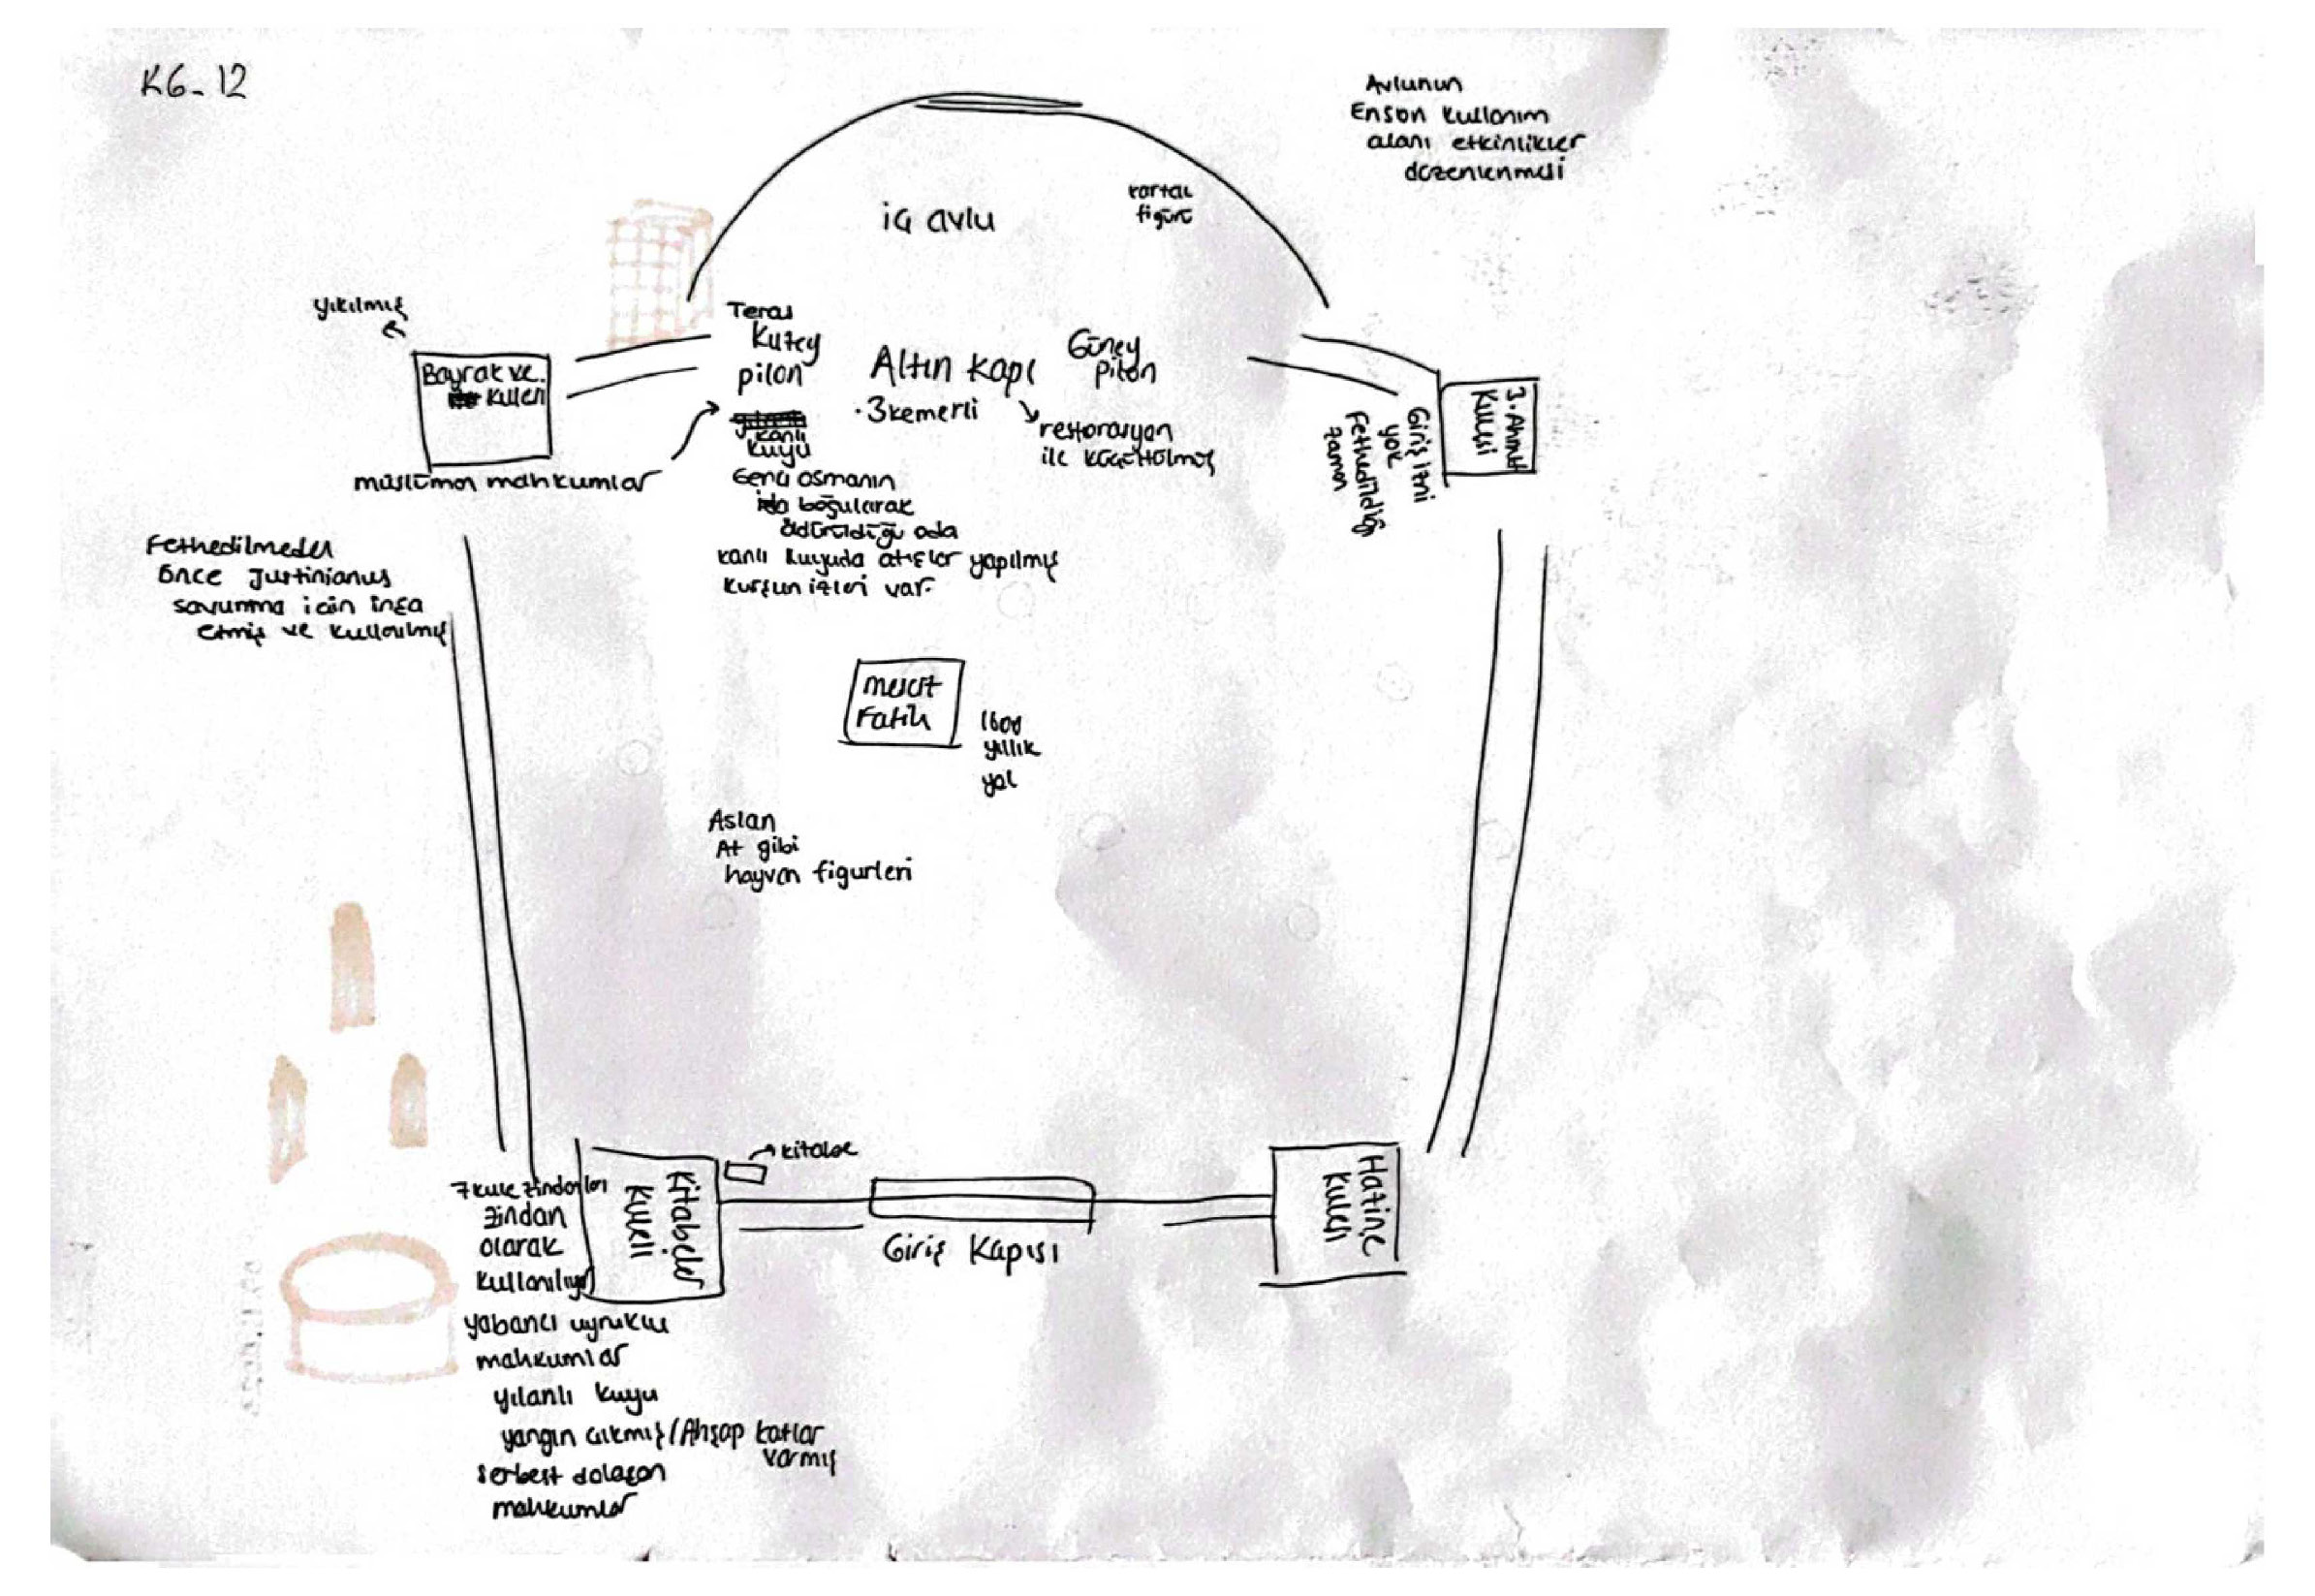 K6-12
Avlunun
Enson kullanım
alanı etkinlikler
düzenlenmesi
kartal
figürü
iç avlu
yıkılmış
Teras
Kuzey
pilon
Altın kapı
Güney
Pilon
• 3 kemerli
restorasyon
ile küçültülmüş
Bayrak ve
kulesi
3. Ahmet
Kulesi
Giriş izni
yok
Fethedildiği
zaman
kanlı
kuyu
müslüman mahkumlar
Genç osmanın
boğularak
öldürüldüğü oda
kanlı kuyuda atışlar yapılmış
kurşun izleri var.
Fethedilmeden
önce Justinianus
savunma için inşa
etmiş ve kullanılmış
mescit
Fatih
1600
yıllık
yol
Aslan
At gibi
hayvan figurleri
kitabe
7 kule zindanları
zindan
olarak
kullanılıyor
Kitabeler
Kulesi
Giriş Kapısı
Hazine
Kulesi
yabancı uyruklu
mahkumlar
yılanlı kuyu
yangın çıkmış / Ahşap katlar
varmış
serbest dolaşan
mahkumlar